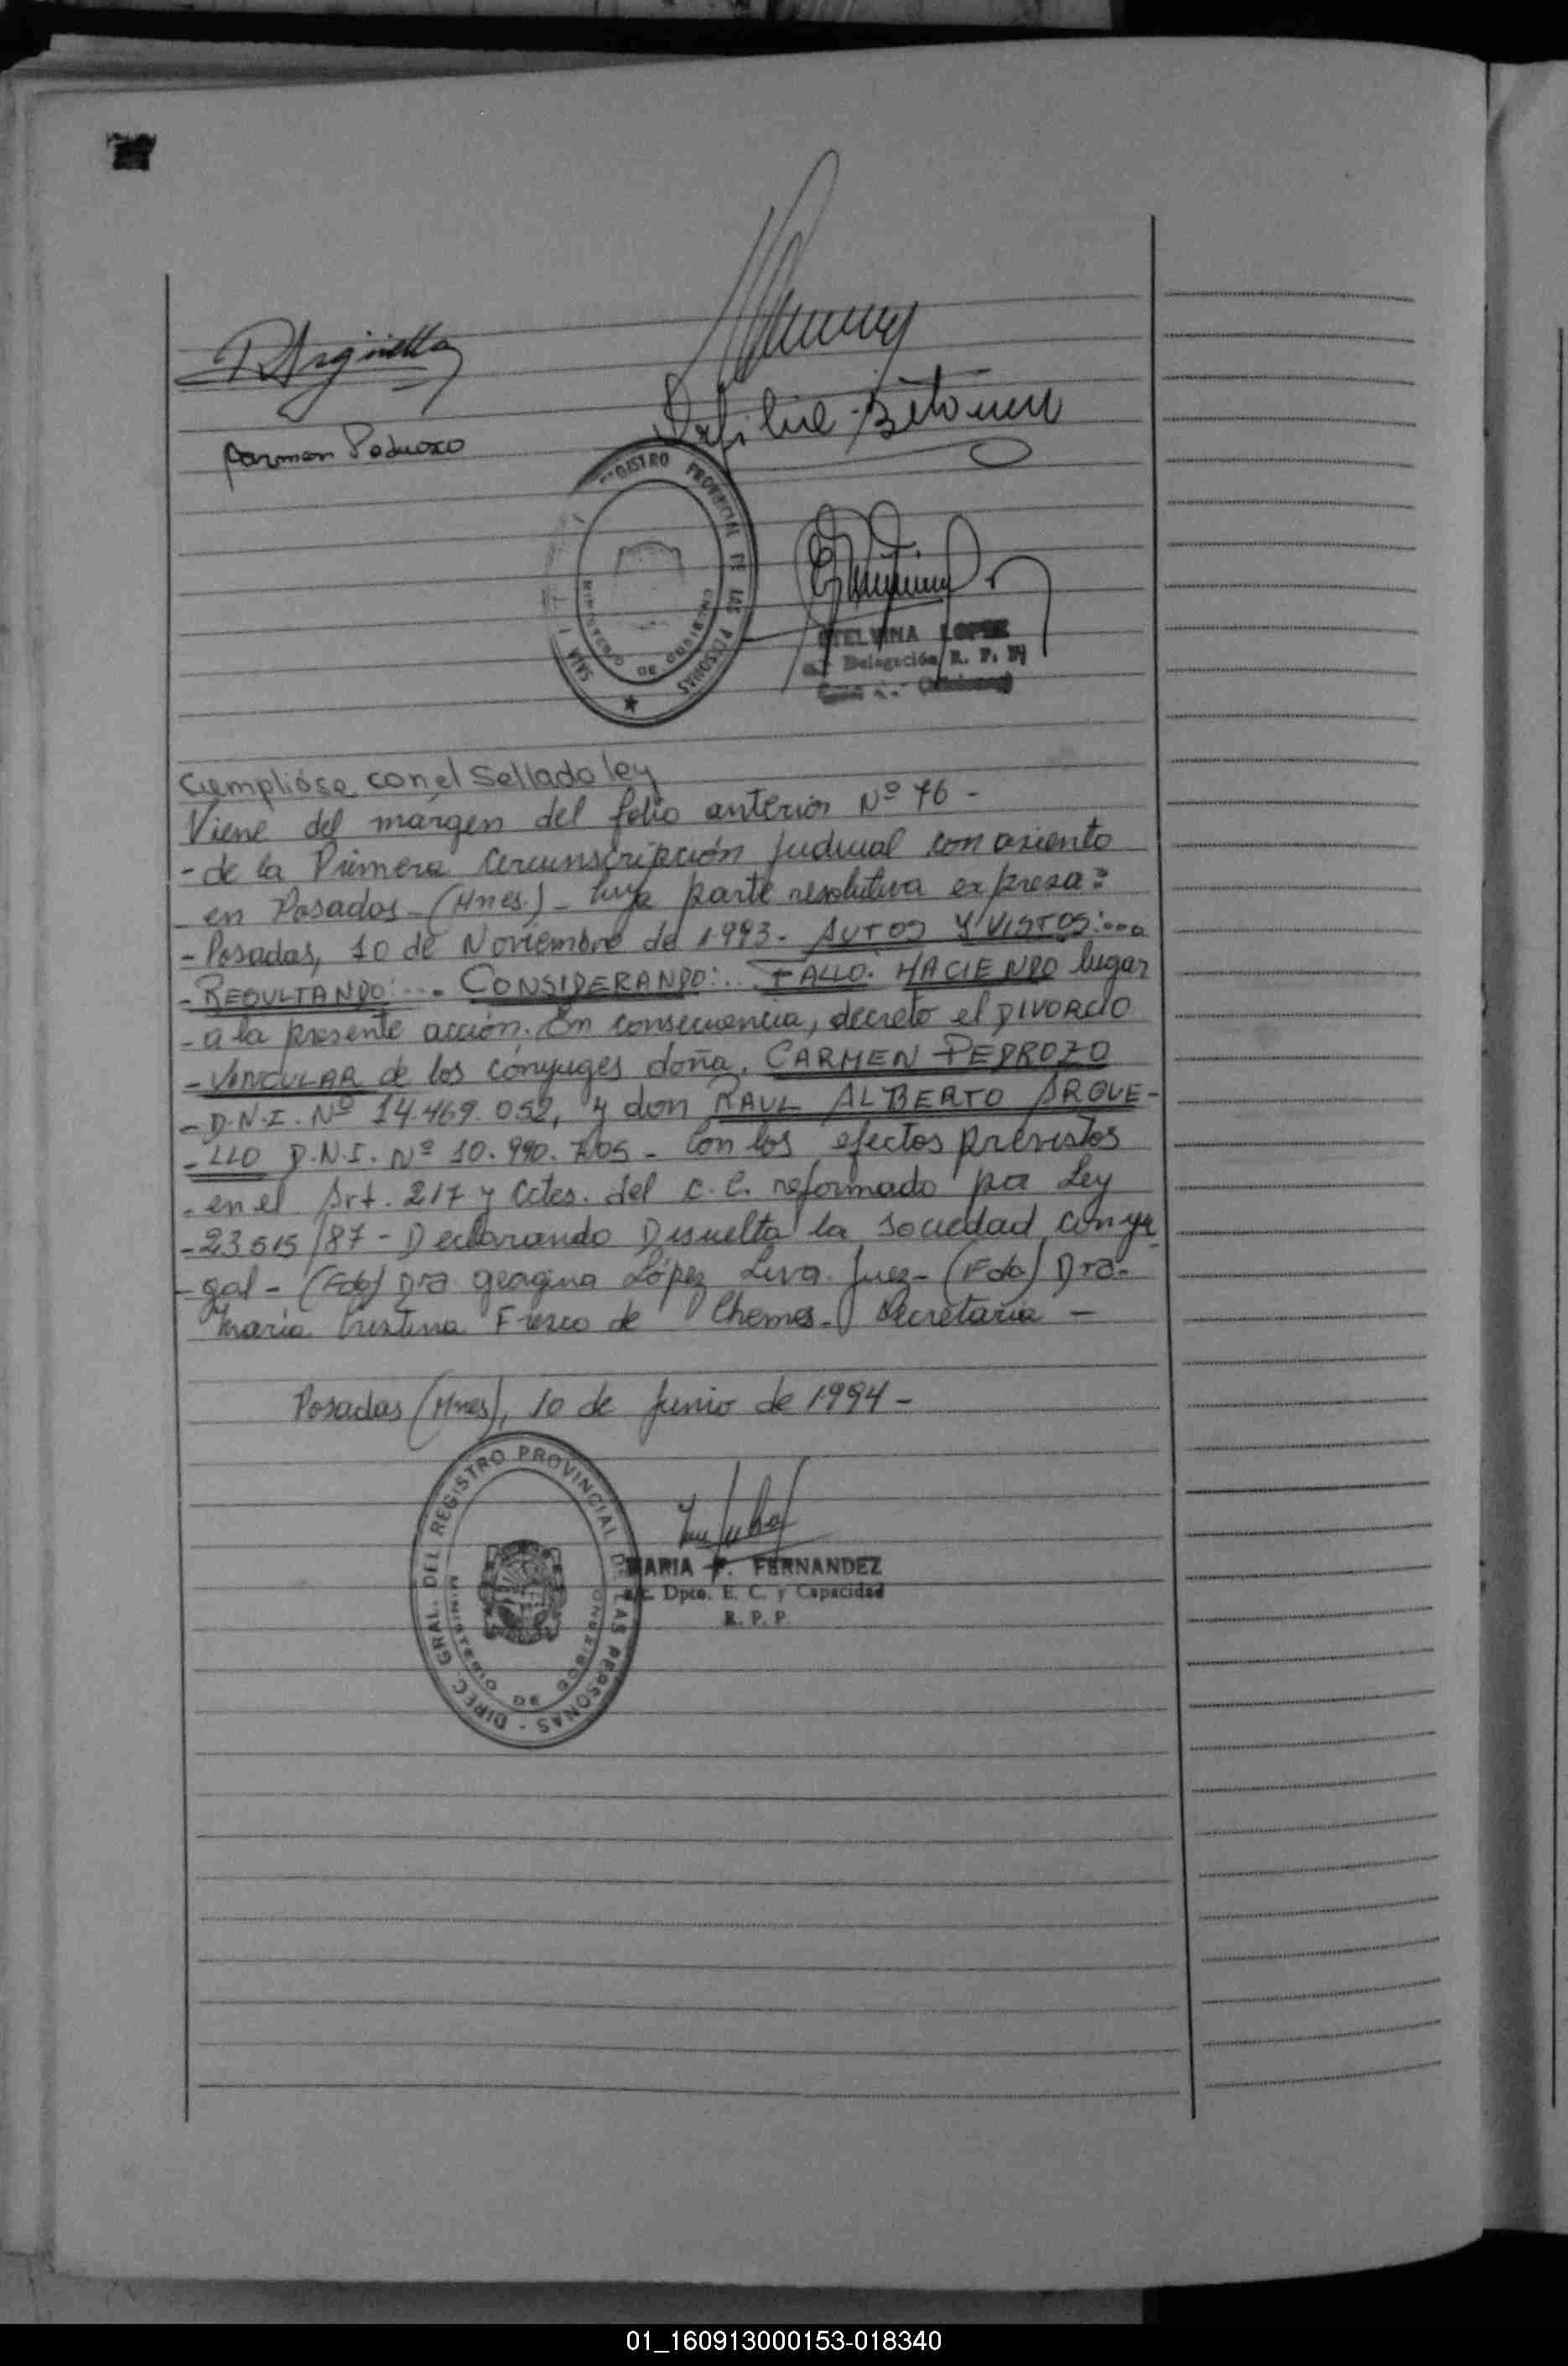 RArguello
Carmen Pedrozo
REGISTRO PROVINCIAL DE LAS PERSONAS
MINISTERIO DE GOBIERNO
ETELVINA LOPEZ
Delegación R. P. P.
Cumplióse con el Sellado ley
Viene del márgen del folio anterior Nº 76 -
- de la Primera Circunscripción Judicial con asiento
en Posadas - (Mnes.) - cuya parte resolutiva expresa:
- Posadas, 10 de Noviembre de 1.993. AUTOS Y VISTOS:...
- RESULTANDO:... CONSIDERANDO:... FALLO: HACIENDO lugar
- a la presente acción. En consecuencia, decreto el DIVORCIO
- VINCULAR de los cónyuges doña, CARMEN PEDROZO
- D.N.I. Nº 14.469.052, y don RAUL ALBERTO ARGUE-
- LLO D.N.I. Nº 10.990.705 - con los efectos previstos
- en el Art. 217 y Cctes. del C.C. reformado por Ley
- 23515/87 - Declarando Disuelta la Sociedad conyu
- gal - (Fdo) Dra. Georgina López Liva. Juez - (Fdo) Dra.
María Cristina Fiesco de Chemes - Secretaria -
Posadas (Mnes), 10 de Junio de 1.994 -
DIREC. GRAL. DEL REGISTRO PROVINCIAL DE LAS PERSONAS
MINISTERIO DE GOBIERNO
MARIA F. FERNANDEZ
a/c. Dpto. E. C. y Capacidad
R. P. P.
01_160913000153-018340